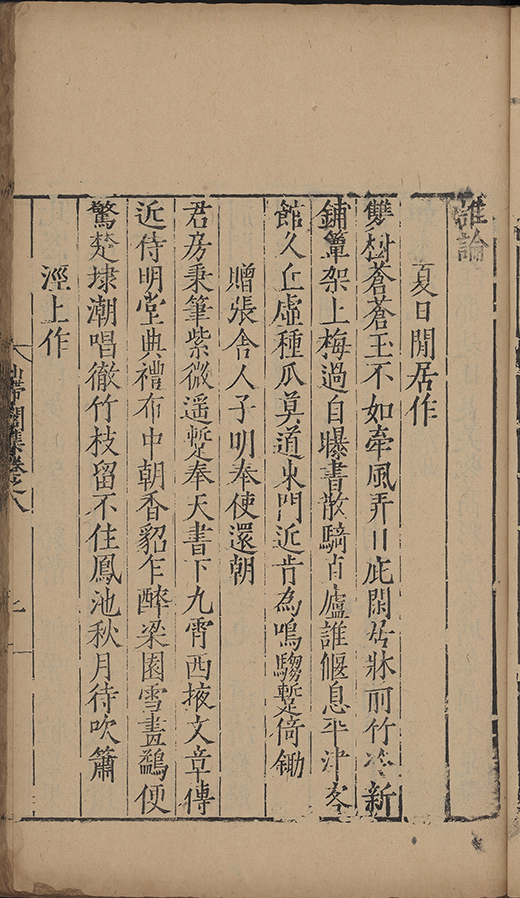 誰論
夏日閒居作
雙樹蒼蒼玉不如牽風弄日庇閑居牀前竹冷新
鋪簟架上梅過自曝書散騎直廬誰偃息平津客
館久丘虛種瓜莫道東門近肯為鳴騶蹔倚鋤
贈張舍人子明奉使還朝
君房秉筆紫微遥蹔奉天書下九霄西掖文章傳
近侍明堂典禮布中朝香貂乍醉梁園雪畫鷁便
驚楚埭潮唱徹竹枝留不住鳳池秋月待吹簫
溼上作
山帶閣集卷之八